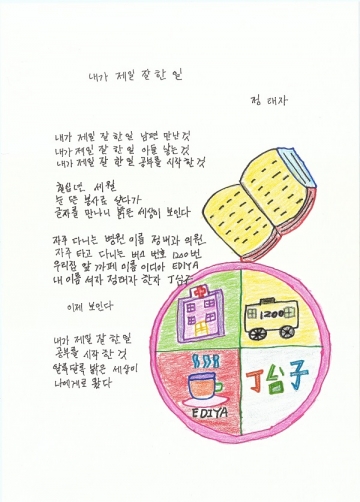 내가 제일 잘 한 일
정 태자
내가 제일 잘 한 일 남편 만난 것
내가 제일 잘 한 일 아들 낳는 것
내가 제일 잘 한 일 공부를 시작 한 것
년 세월
눈 뜬 봉사로 살다가
글자를 만나니 밝은 세상이 보인다
자주 다니는 병원 이름 정내과 의원
자주 타고 다니는 버스 번호 1200번
우리집 앞 까페 이름 이디야 EDIYA
내 이름 석자 정태자 한자 丁台子
이제 보인다
내가 제일 잘 한 일
공부를 시작 한 것
알록달록 밝은 세상이
나에게로 왔다
1200
EDIYA
丁台子